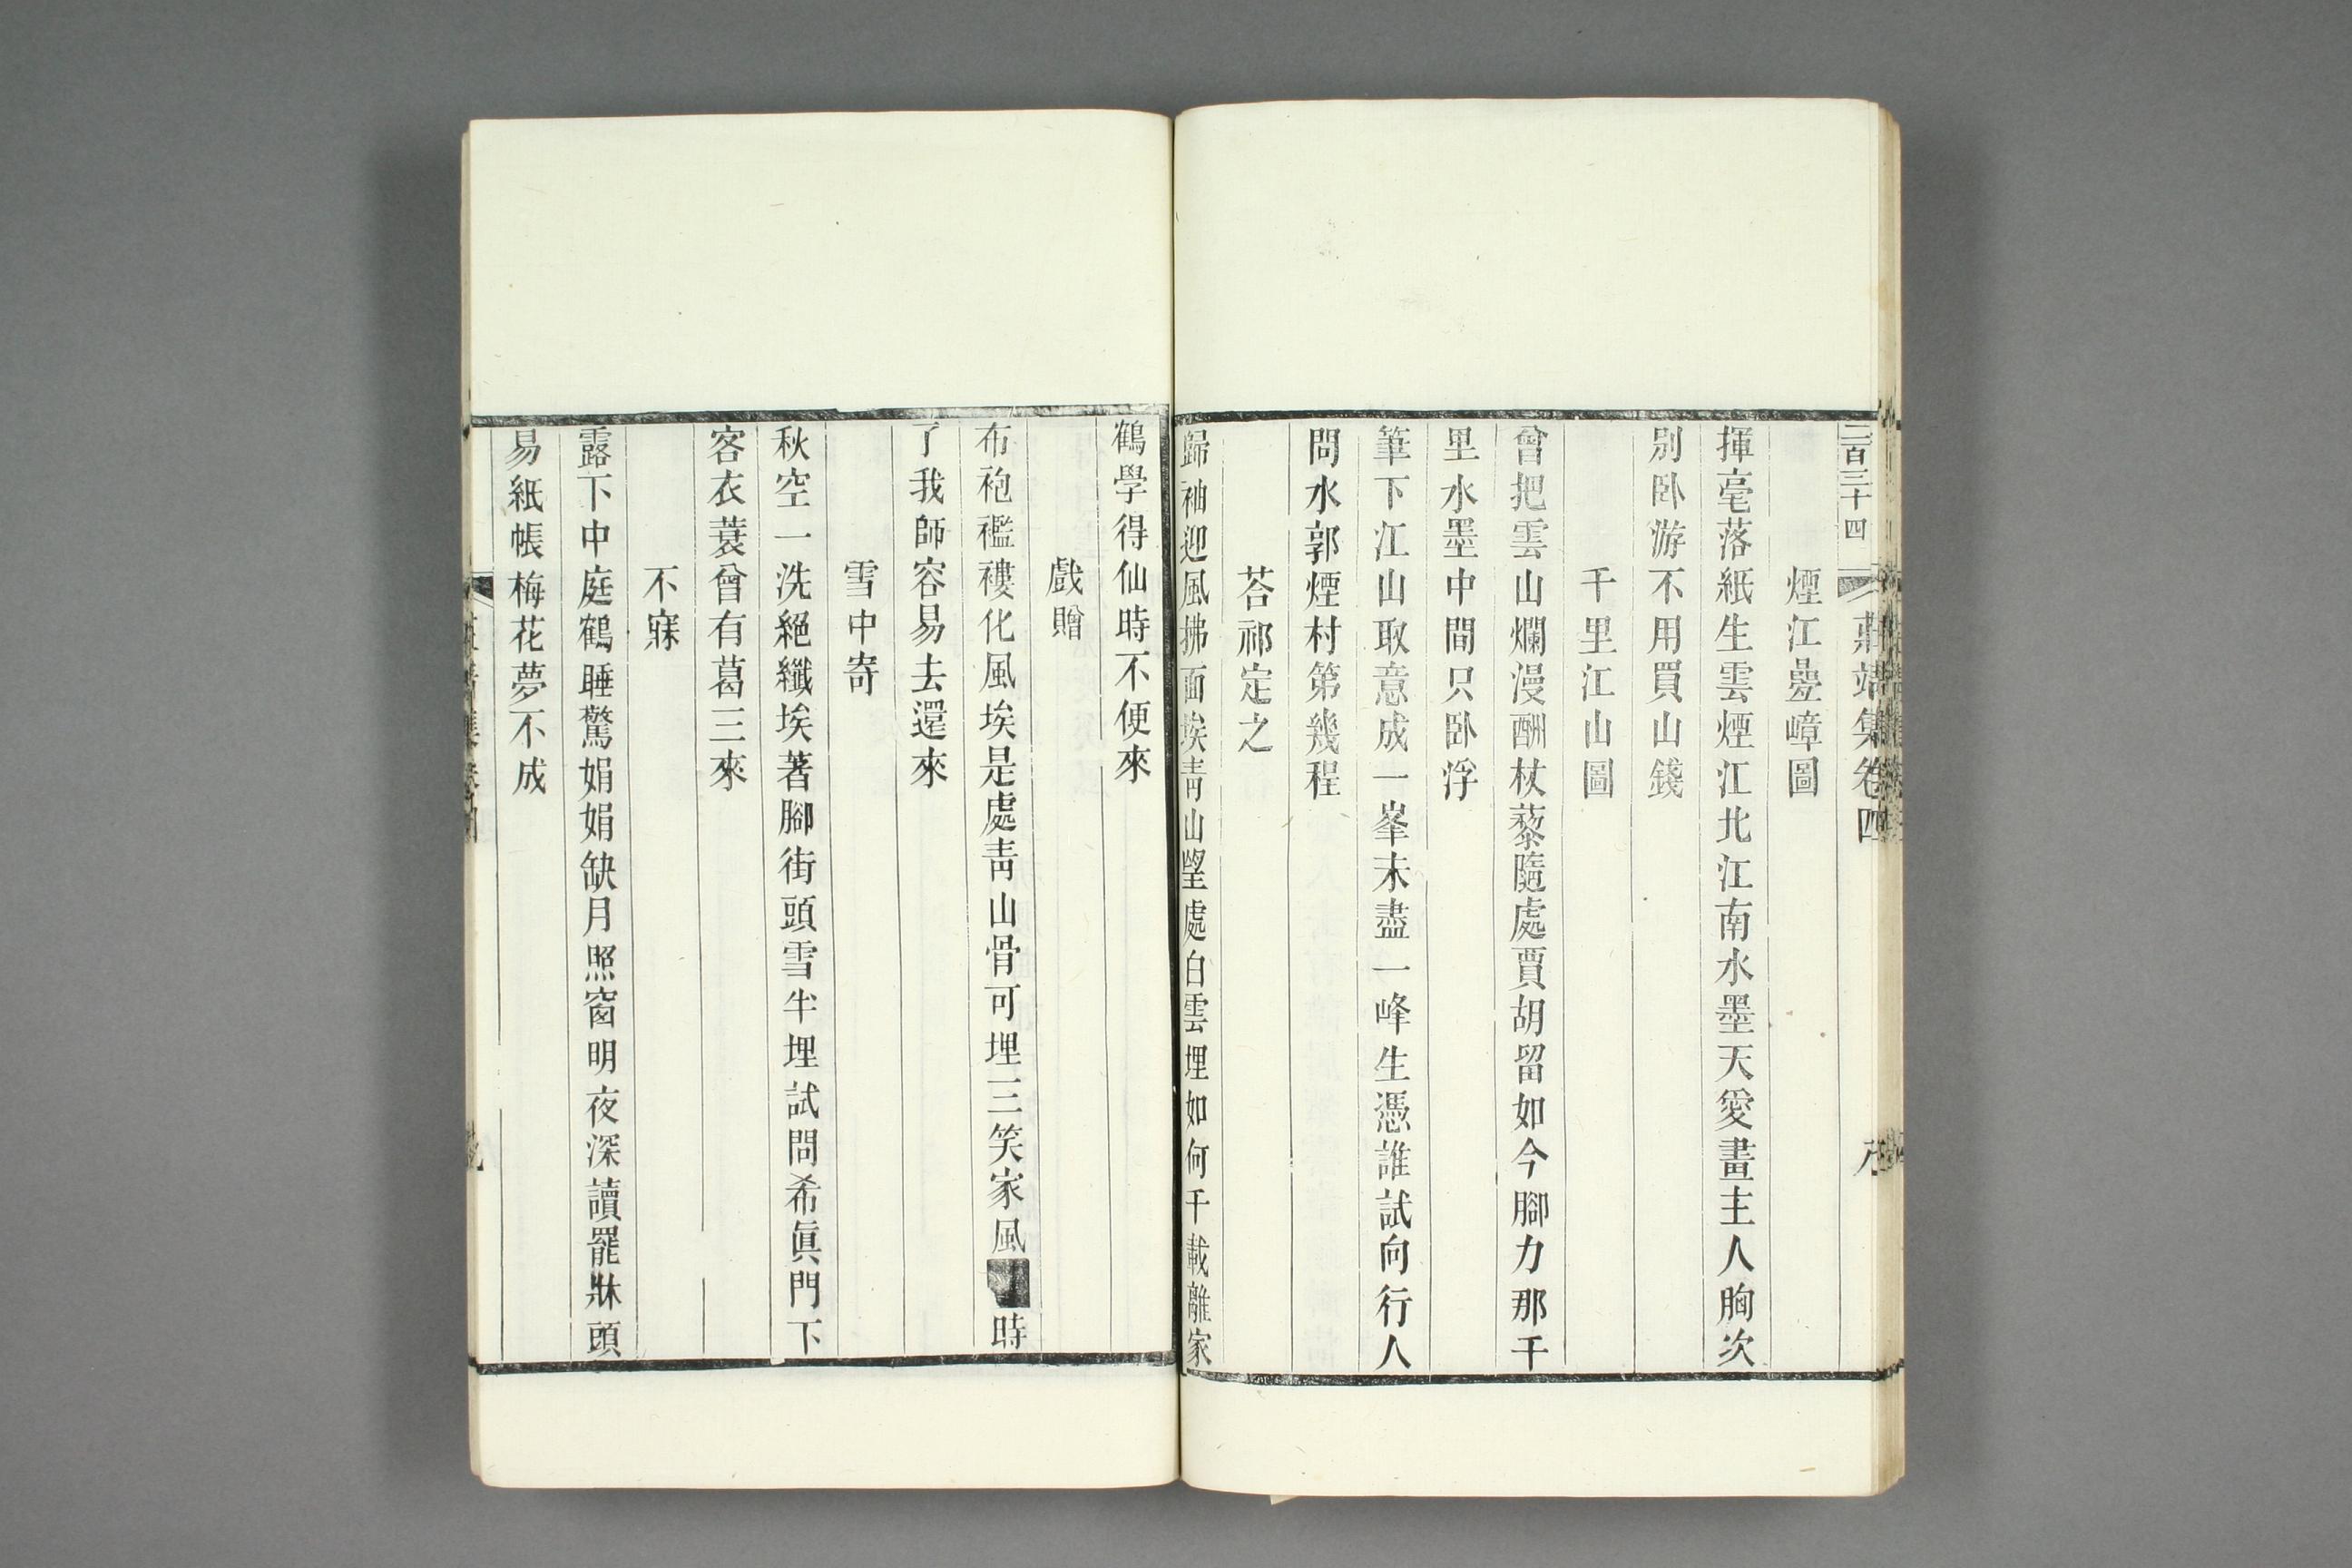 二百三十四
莊靖集卷四
煙江疊嶂圖
揮毫落紙生雲煙江北江南水墨天愛畫主人胸次
別卧游不用買山錢
千里江山圖
曾把雲山爛漫酬杖藜隨處賈胡留如今腳力那千
里水墨中間只卧浮
筆下江山取意成一峯未盡一峰生憑誰試向行人
問水郭煙村第幾程
荅祁定之
歸袖迎風拂面埃青山朢處白雲埋如何千載離家
鶴學得仙時不便來
戲贈
布袍襤褸化風埃是處靑山骨可埋三笑家風時
了我師容易去還來
雪中寄
秋空一洗絕纖埃著腳街頭雪半埋試問希眞門下
客衣蓑曾有葛三來
不寐
露下中庭鶴睡驚娟娟缺月照窗明夜深讀罷牀頭
易紙帳梅花夢不成